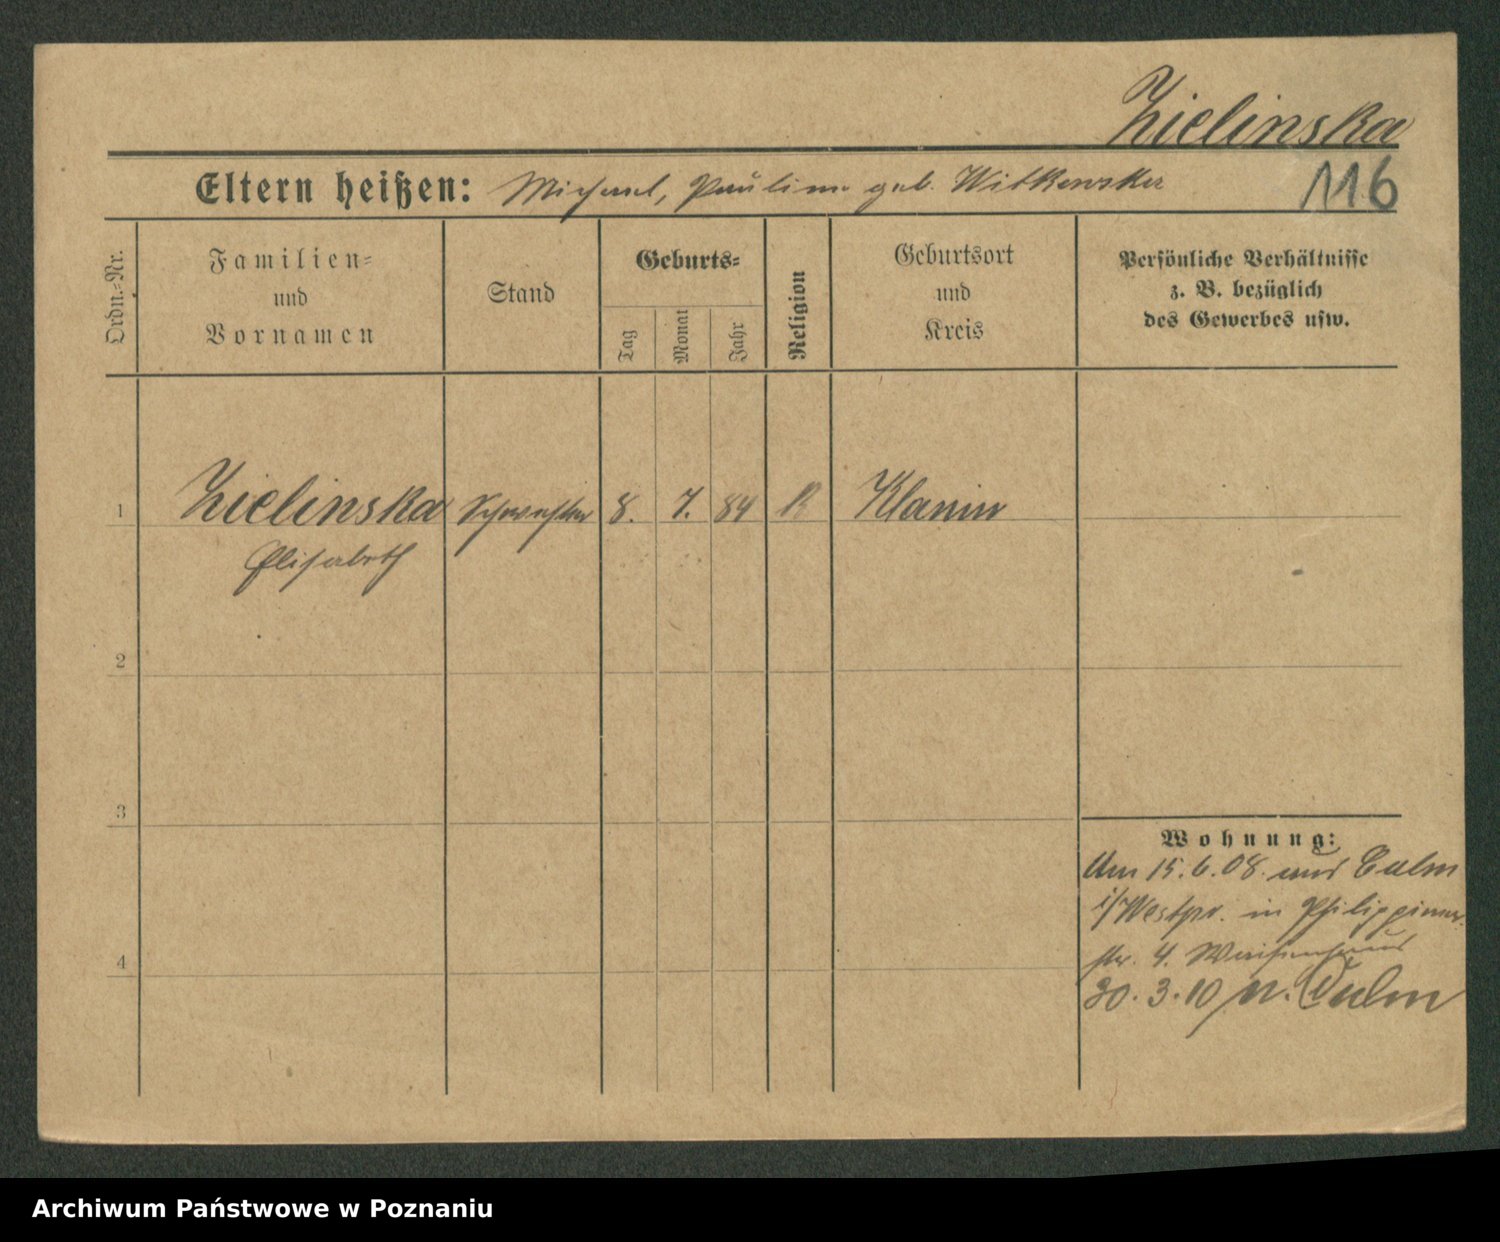 Zielinska
116
Eltern heißen: Michael, Pauline geb. Witkowska
Ordn.-Nr.
Familien-
und
Vornamen
Stand
Geburts-
Tag
Monat
Jahr
Religion
Geburtsort
und
Kreis
Persönliche Verhältnisse
z. B. bezüglich
des Gewerbes usw.
1 Zielinska Schwester 8. 7. 84 K Klanin
Elisabeth
2
3
4
Wohnung:
Am 15.6.08. aus Culm
i/Westpr. in Philippinen
str. 4. Waisenhaus
30.3.10 n. Culm
Archiwum Państwowe w Poznaniu